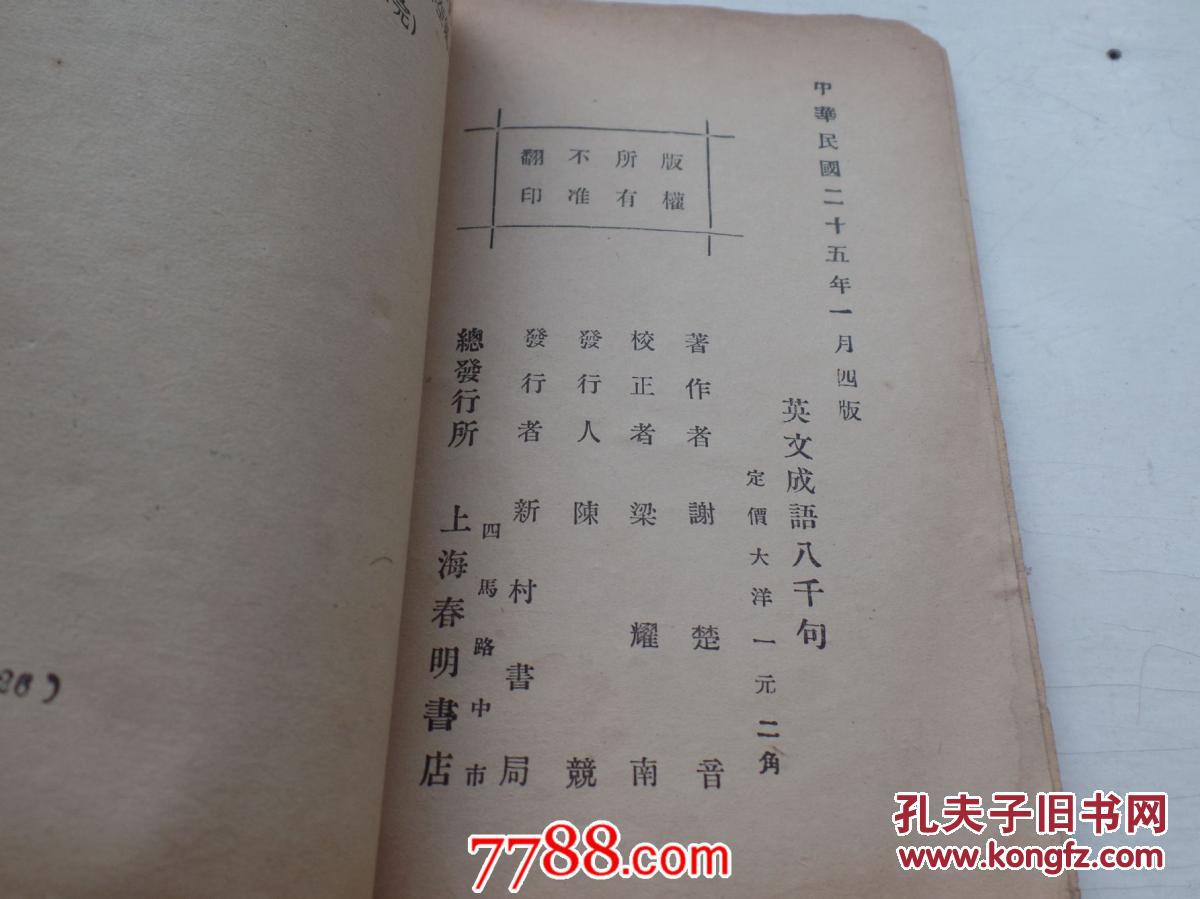 中華民國二十五年一月四版
英文成語八千句
定價大洋一元二角
著作者 謝楚音
校正者 梁耀南
發行人 陳競
發行者 新村書局
四馬路中市
總發行所 上海春明書店
版權
所有
不准
翻印
完)
26)
7788.com
孔夫子旧书网
www.kongfz.com